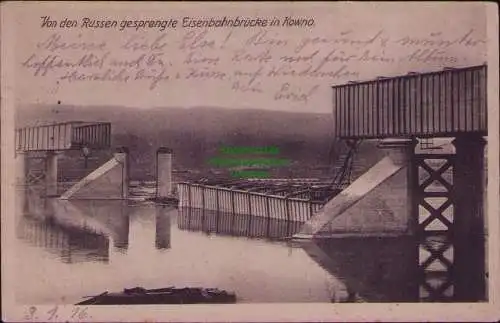 Von den Russen gesprengte Eisenbahnbrücke in Kowno.
Meine liebe Else! Bin gesund & munter
hoffentlich auch Du. Eine Karte mal für dein Album
Herzliche Grüße & Küsse auf Wiedersehn
Dein
3. 1. 16.